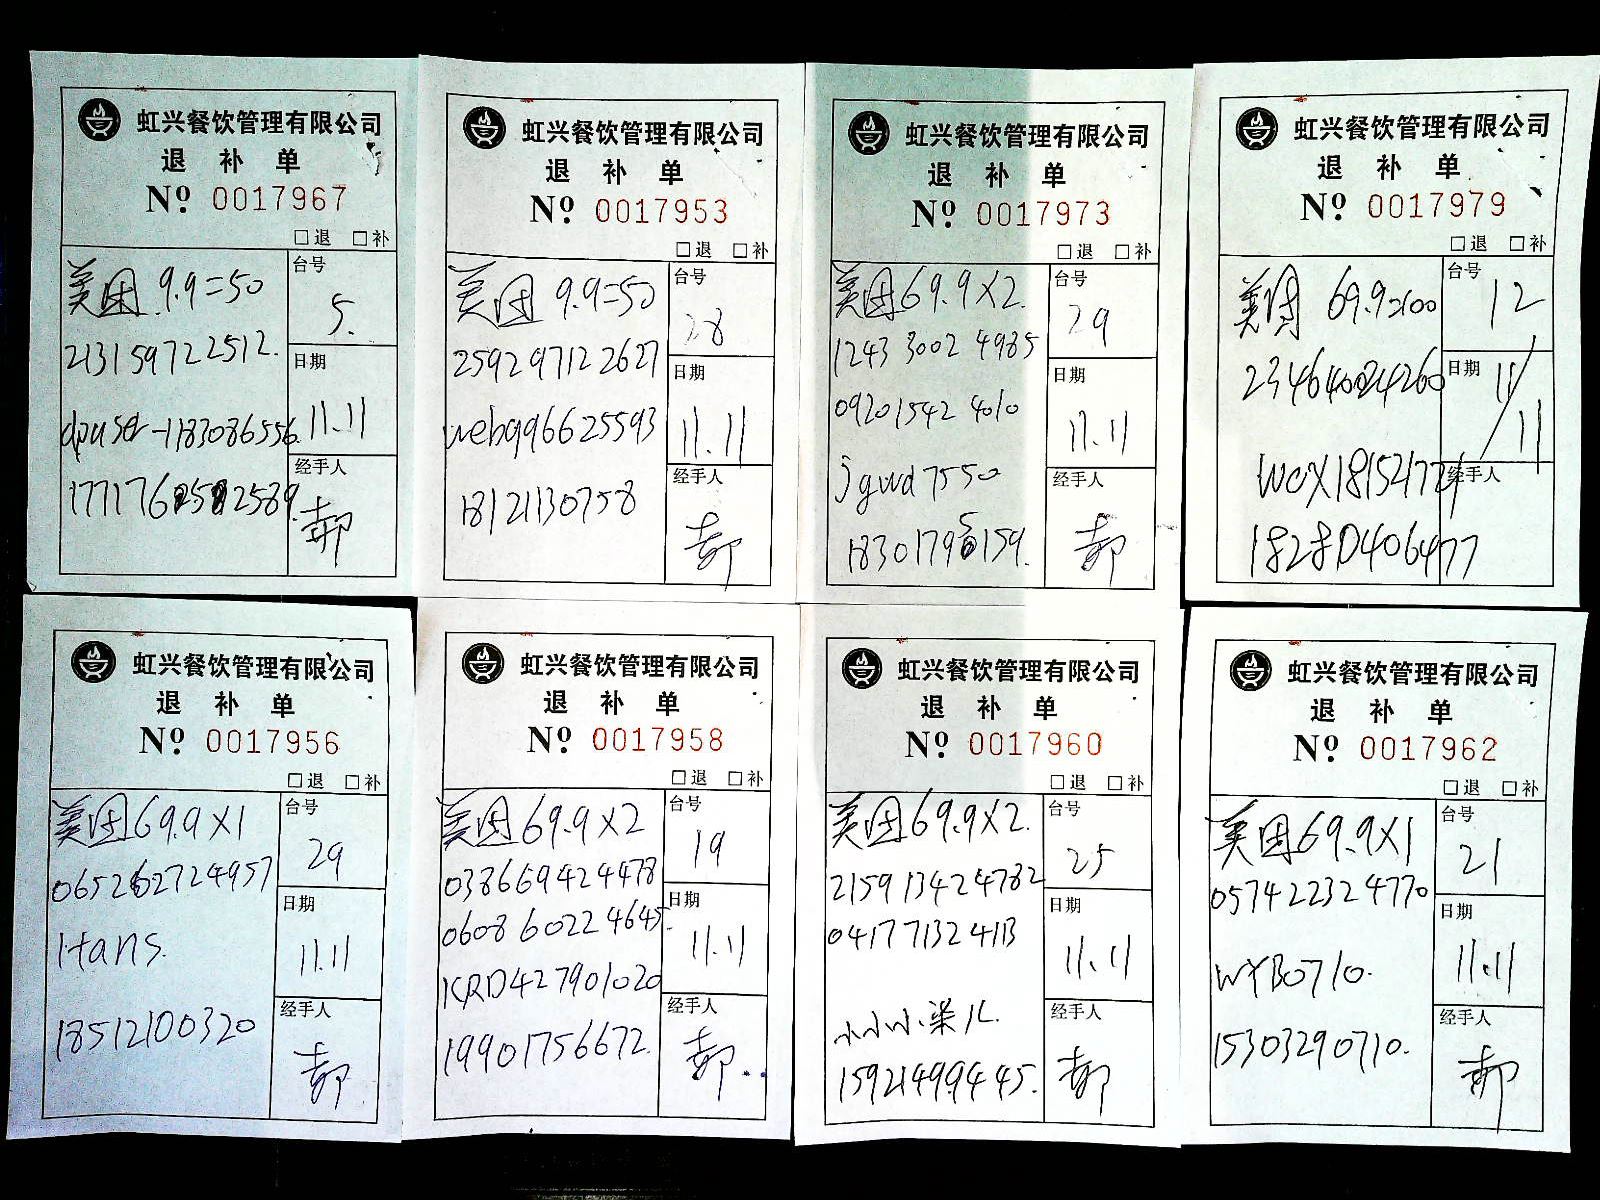 虹兴餐饮管理有限公司
退 补 单
Nº 0017967
□退 □补
美团 9.9=50
213159722512.
dpuser-1183086556
台号
5.
日期
11.11
经手人
虹兴餐饮管理有限公司
退 补 单
Nº 0017953
□退 □补
美团 9.9=50
259297122627
webqq6625593
18121130758
台号
28
日期
11.11
经手人
虹兴餐饮管理有限公司
退 补 单
Nº 0017973
□退 □补
美团69.9X2.
1243 3002 4985
09201542 4010
jgwd7550
台号
29
日期
11.11
经手人
虹兴餐饮管理有限公司
退 补 单
Nº 0017979
□退 □补
美团 69.9=100
18280406477
台号
12
日期
11/11
经手人
虹兴餐饮管理有限公司
退 补 单
Nº 0017956
□退 □补
美团69.9X1
065262724957
Hans.
18512100320
台号
29
日期
11.11
经手人
虹兴餐饮管理有限公司
退 补 单
Nº 0017958
□退 □补
美团69.9X2
038669424478
0608 6022 4645.
KRD427901020
19901756672.
台号
19
日期
11.11
经手人
虹兴餐饮管理有限公司
退 补 单
Nº 0017960
□退 □补
美团69.9X2.
2159 1342 4782
0417 7132 4113
15921499445.
台号
25
日期
11.11
经手人
虹兴餐饮管理有限公司
退 补 单
Nº 0017962
□退 □补
美团69.9X1
0574 2232 4770
WYB0710.
15303290710.
台号
21
日期
11.11
经手人